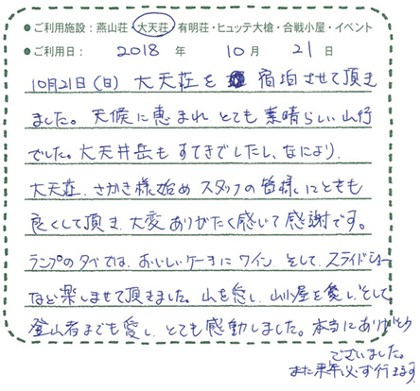 ●ご利用施設：燕山荘・大天荘・有明荘・ヒュッテ大槍・合戦小屋・イベント
●ご利用日： 2018 年 10 月 21 日
10月21日(日) 大天荘を 宿泊させて頂き
ました。天候に恵まれ とても 素晴らしい山行
でした。大天井岳も すてきでしたし、なにより、
大天荘、さかき様始め スタッフの皆様にとても
良くして頂き、大変 ありがたく感じて 感謝です。
ランプの夕べでは、おいしいケーキに ワイン そして、スライドショー
など楽しませて頂きました。山を愛し、山小屋を愛し、そして
登山者までも愛し、とても感動しました。本当にありがとう
ございました。
また来年必ず行きます